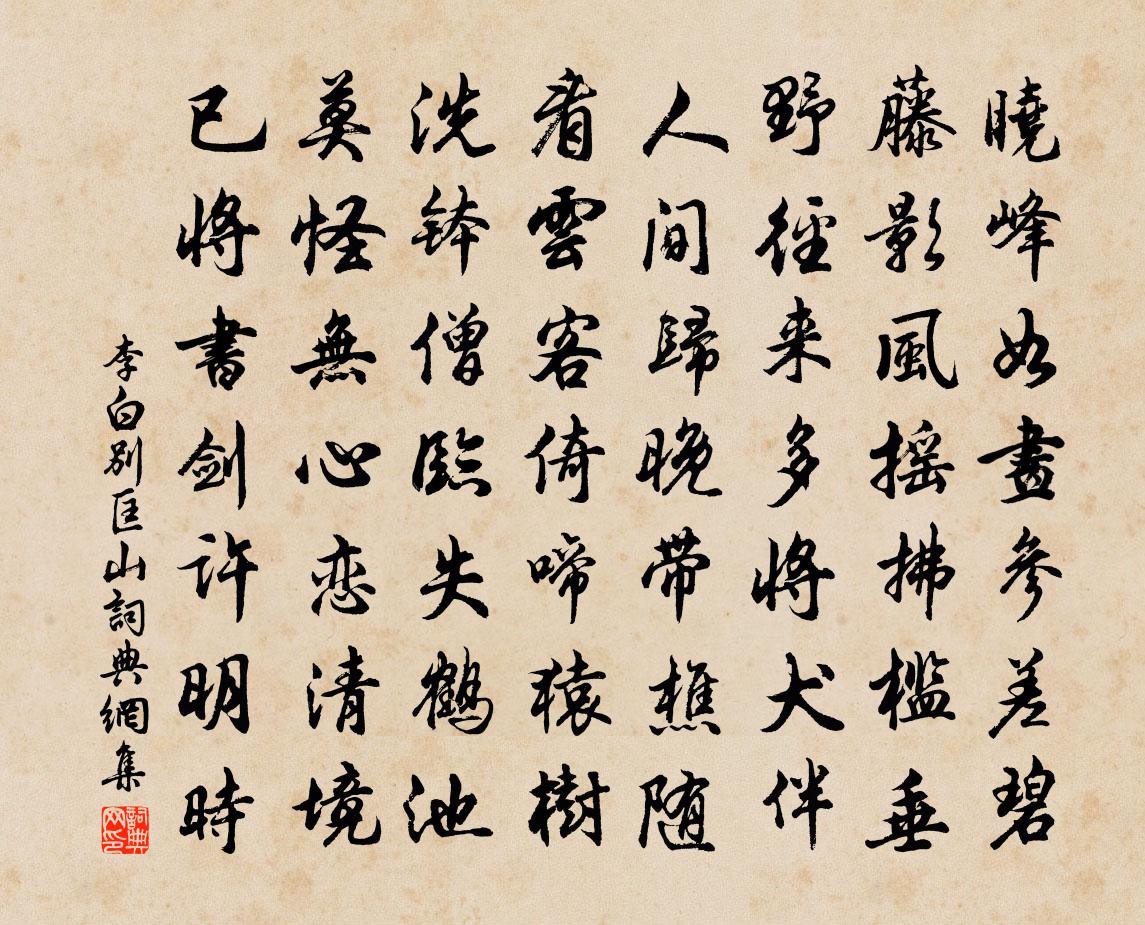 曉峰如畫參差碧
藤影風搖拂檻垂
野徑来多將犬伴
人間歸晚帶樵随
看雲客倚啼猿樹
洗鉢僧臨失鶴池
莫怪無心恋清境
已將書劍許明時
李白別匡山詞典網集
詞典网印